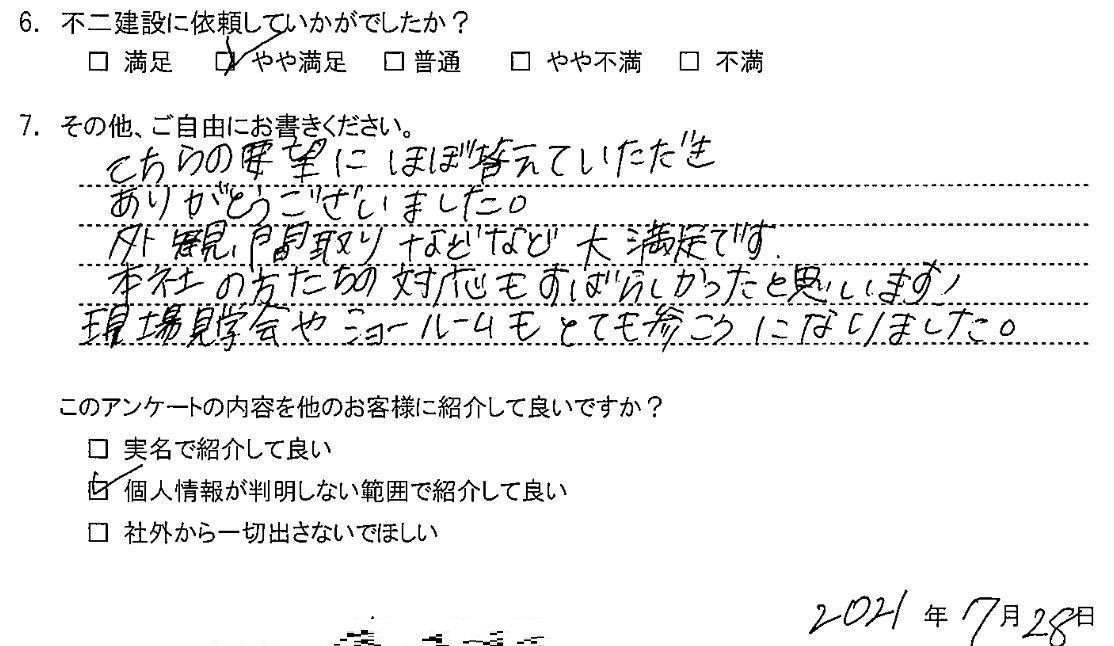 6. 不二建設に依頼していかがでしたか？
□ 満足 ☑ やや満足 □ 普通 □ やや不満 □ 不満
7. その他、ご自由にお書きください。
こちらの要望にほぼ答えていただき
ありがとうございました。
外観、間取りなどなど大満足です.
本社の方たちの対応もすばらしかったと思います!
現場見学会やショールームもとても参こうになりました。
このアンケートの内容を他のお客様に紹介して良いですか？
□ 実名で紹介して良い
☑ 個人情報が判明しない範囲で紹介して良い
□ 社外から一切出さないでほしい
2021 年 7 月 28 日